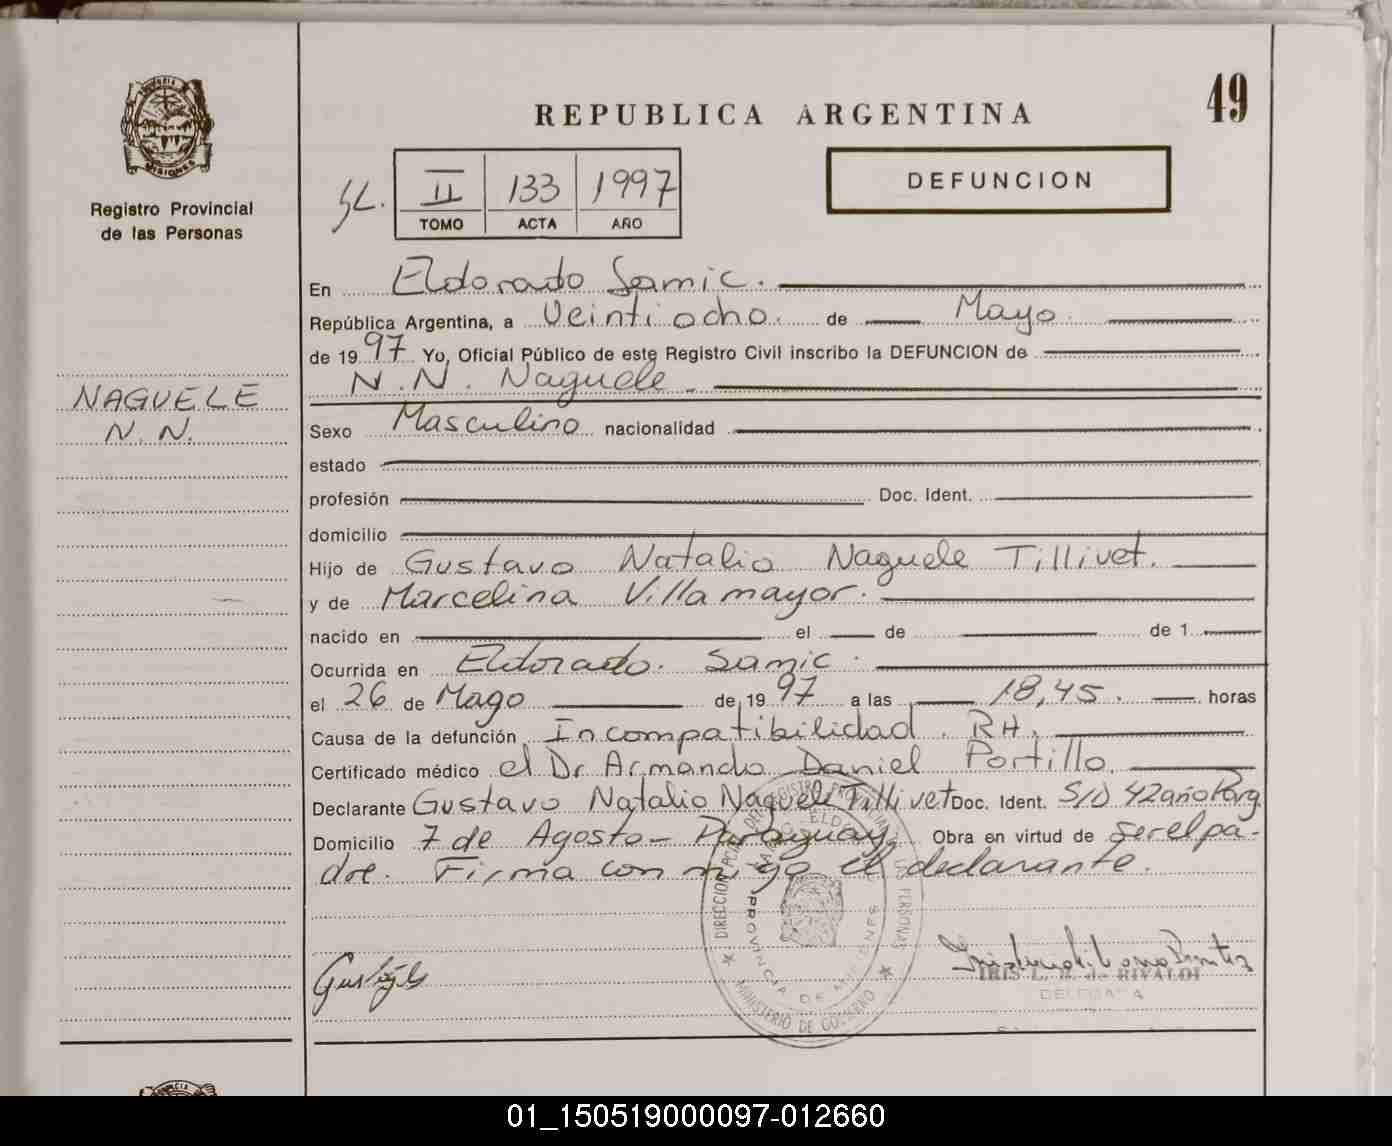 49
REPUBLICA ARGENTINA
DEFUNCION
MISIONES
Registro Provincial
de las Personas
II 133 1997
TOMO ACTA AÑO
En Eldorado Samic.
República Argentina, a Veintiocho. de Mayo.
de 1997 Yo, Oficial Público de este Registro Civil inscribo la DEFUNCION de
N.N. Naguele
NAGUELE
N.N.
Sexo Masculino nacionalidad
estado
profesión Doc. Ident.
domicilio
Hijo de Gustavo Natalio Naguele Tillivet.
y de Marcelina Villamayor.
nacido en el de de 1
Ocurrida en Eldorado. Samic.
el 26 de Mayo de 1997 a las 18,45. horas
Causa de la defunción Incompatibilidad. RH.
Certificado médico el Dr Armando Daniel Portillo
Declarante Gustavo Natalio Naguele Tillivet Doc. Ident. S/D 42año Parg
Domicilio 7 de Agosto - Paraguay. Obra en virtud de ser el pa-
dre. Firma con migo el declarante.
PROVINCIA DE MISIONES
MINISTERIO DE GOBIERNO
RIVALDI
DELEGADA
01_150519000097-012660